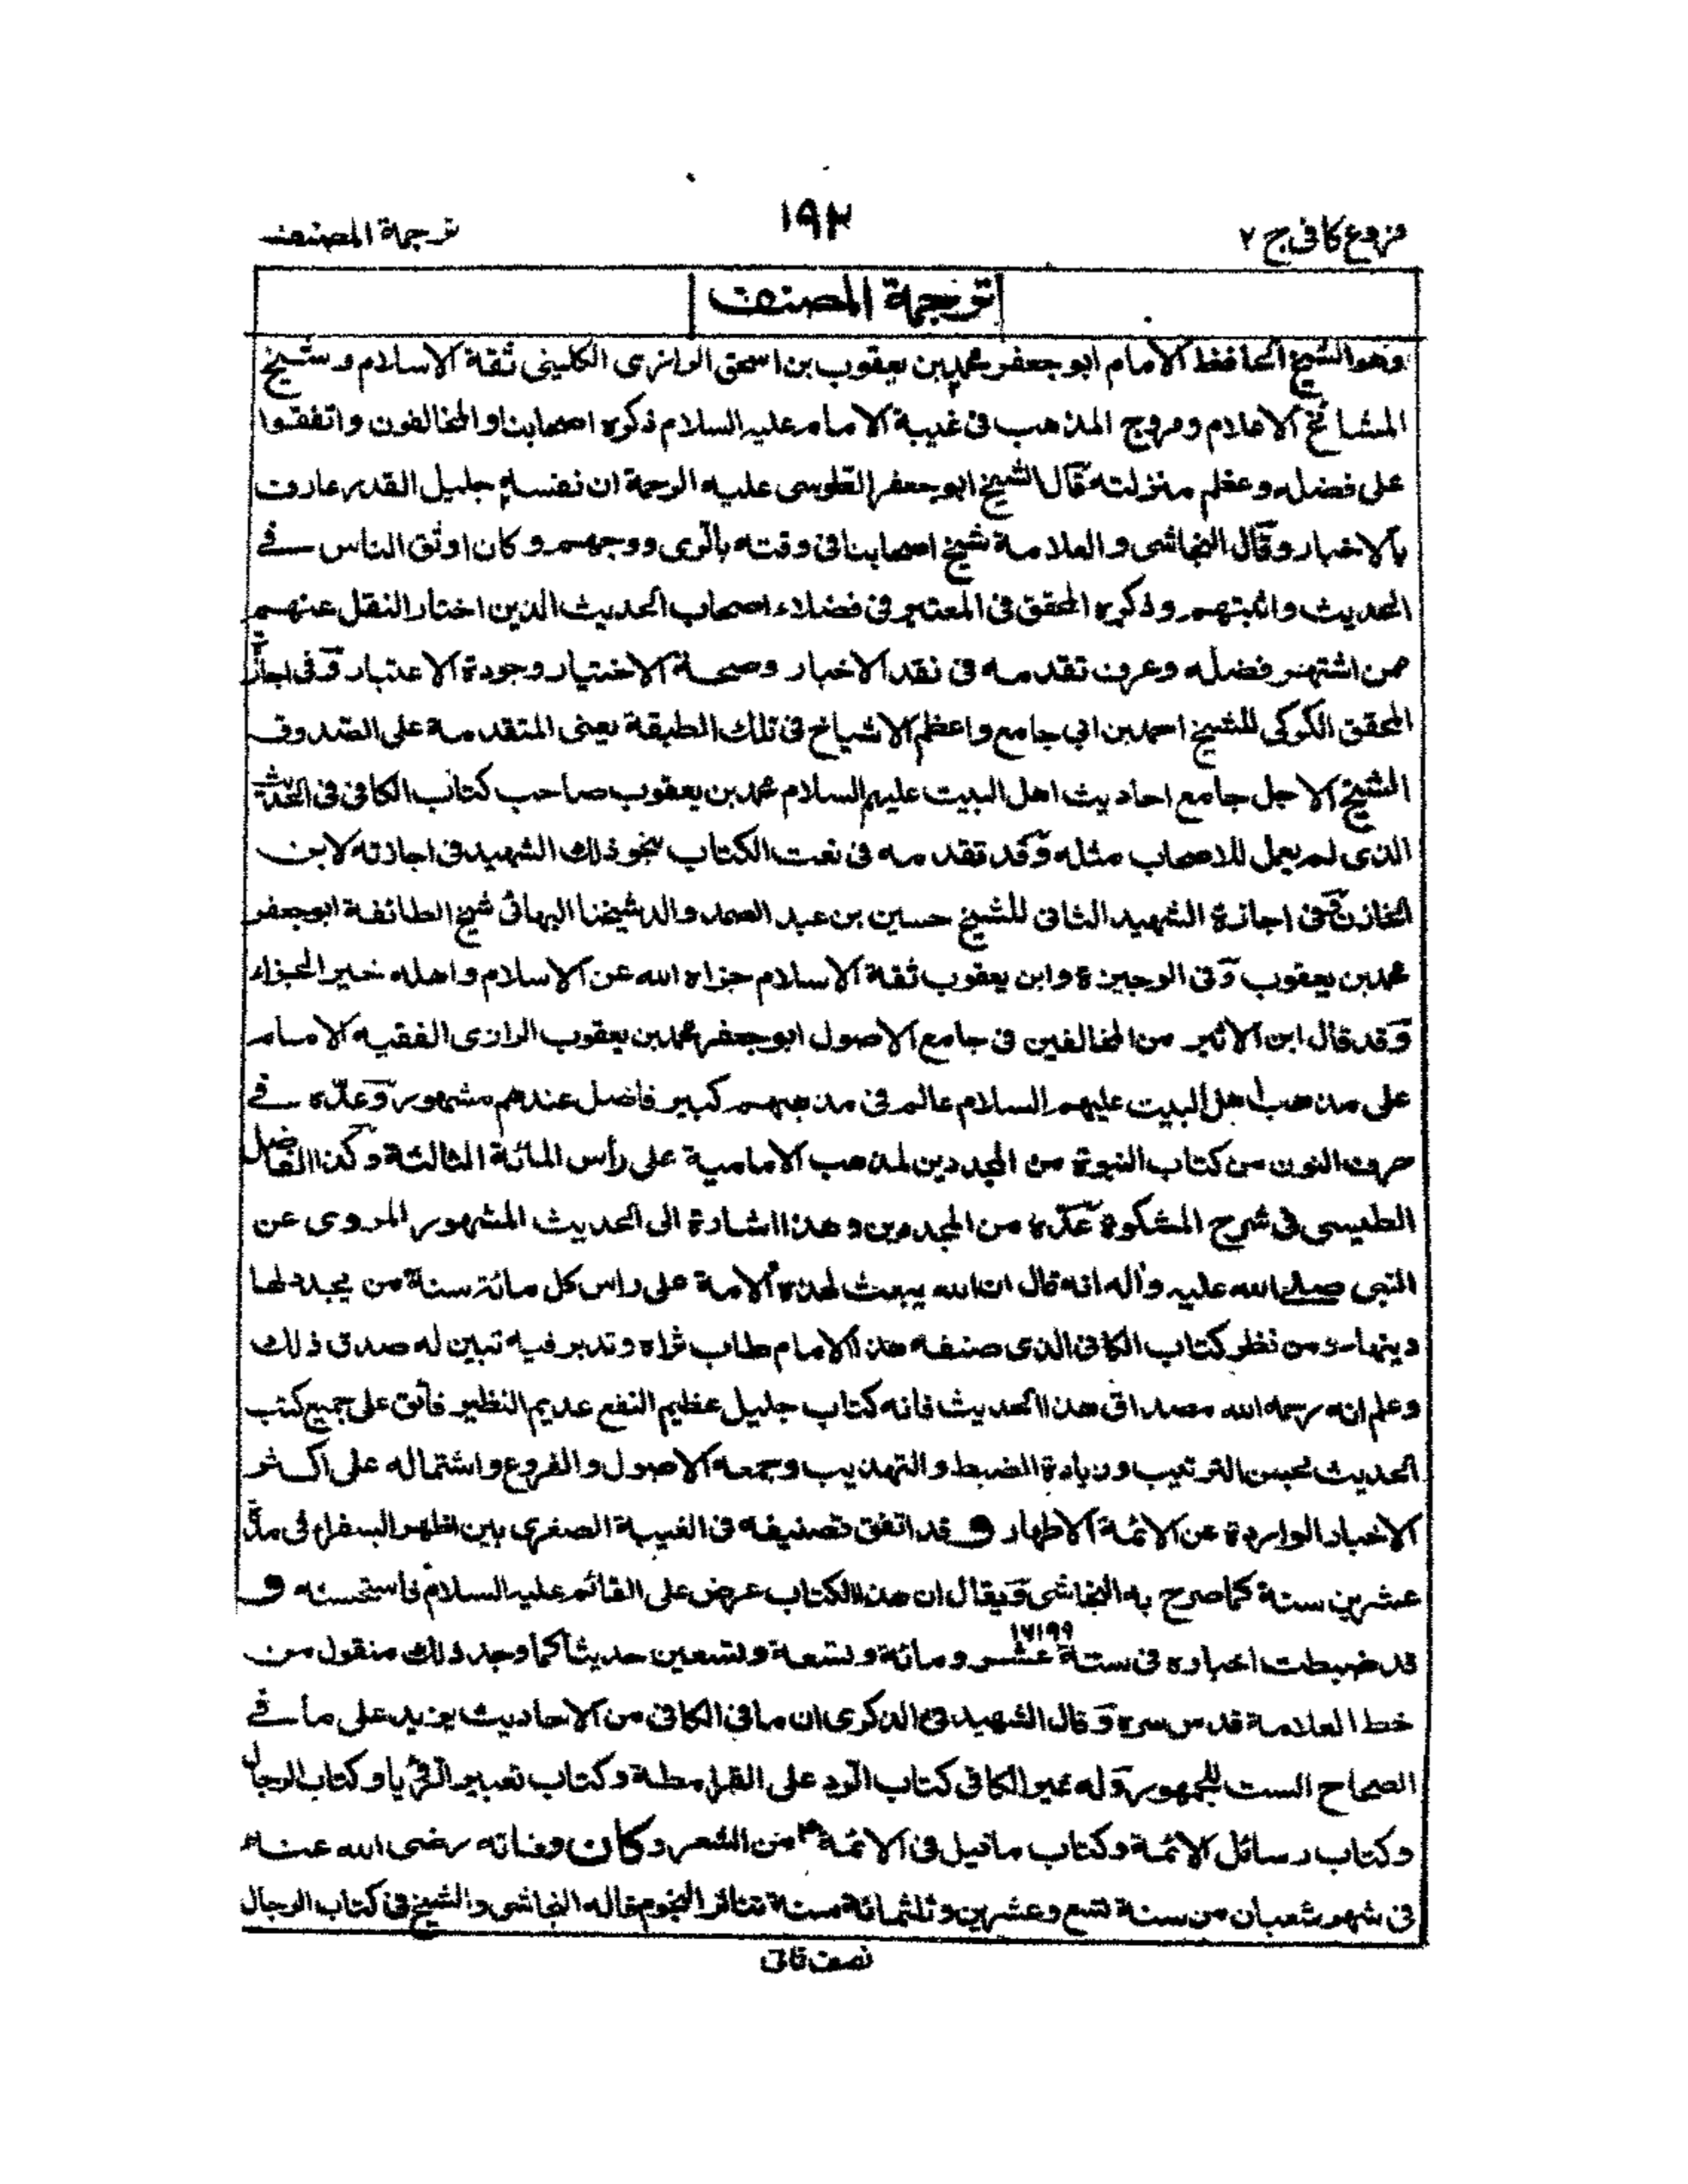 فروع كافى ج ٢
١٩٣
ترجمة المصنف
ترجمة المصنف
وهو الشيخ الحافظ الامام ابو جعفر محمد بن يعقوب بن اسحق الرازى الكلينى ثقة الاسلام و شيخ
المشائخ الاعلام ومروج المذهب فى غيبة الامام عليه السلام ذكره اصحابنا والمخالفون واتفقوا
على فضله وعظم منزلته قال الشيخ ابو جعفر الطوسى عليه الرحمة ان نفسه جليل القدر عارف
بالاخبار وقال النجاشى والعلامة شيخ اصحابنا فى وقته بالرى ووجههم وكان اوثق الناس فے
الحديث واثبتهم وذكره المحقق فى المعتبر فى فضلاء اصحاب الحديث الذين اختار النقل عنهم
ممن اشتهر فضله وعرف تقدمه فى نقد الاخبار وصحة الاختيار وجودة الاعتبار وفى اجازة
المحقق الكركى للشيخ احمد بن ابي جامع واعظم الاشياخ فى تلك الطبقة يعنى المتقدمة على الصدوق
الشيخ الاجل جامع احاديث اهل البيت عليهم السلام محمد بن يعقوب صاحب كتاب الكافى فى الحديث
الذى لم يعمل للاصحاب مثله وقد تقدمه فى نعت الكتاب بنحو ذلك الشهيد فى اجازته لابن
الخازن وفى اجازة الشهيد الثانى للشيخ حسين بن عبد الصمد والد شيخنا البهائى شيخ الطائفة ابو جعفر
محمد بن يعقوب وفى الوجيزة وابن يعقوب ثقة الاسلام جزاه الله عن الاسلام واهله خير الجزاء
وقد قال ابن الاثير من المخالفين فى جامع الاصول ابو جعفر محمد بن يعقوب الرازى الفقيه الامام
على مذهب اهل البيت عليهم السلام عالم فى مذهبهم كبير فاضل عندهم مشهور وعدّه فے
حرف النون من كتاب النبوة من المجددين لمذهب الامامية على رأس المائة الثالثة وكذا الفاضل
الطيبى فى شرح المشكوة عدّه من المجددين وهذا اشارة الى الحديث المشهور المروى عن
النبى صلے الله عليه واله انه قال ان الله يبعث لهذه الامة على راس كل مائة سنة من يجدد لها
دينها ومن نظر كتاب الكافى الذى صنفه هذا الامام طاب ثراه وتدبر فيه تبين له صدق ذلك
وعلم انه رحمه الله مصداق هذا الحديث فانه كتاب جليل عظيم النفع عديم النظير فائق على جميع كتب
الحديث بحسن الترتيب وزيادة الضبط والتهذيب وجمعه الاصول والفروع واشتماله على اكثر
الاخبار الواردة عن الائمة الاطهار و قد اتفق تصنيفه فى الغيبة الصغرى بين اظهر السفراء فى مدة
عشرين سنة كما صرح به النجاشى ويقال ان هذا الكتاب عرض على القائم عليه السلام فاستحسنه و
١٦١٩٩
قد ضبطت اخباره فى ستة عشر و مائة وتسعة وتسعين حديثا كما وجد ذلك منقول من
خط العلامة قدس سره وقال الشهيد فى الذكرى ان ما فى الكافى من الاحاديث يزيد على ما فے
الصحاح الست للجمهور وله غير الكافى كتاب الرد على القرامطة وكتاب تعبير الرؤيا وكتاب الرجال
وكتاب رسائل الائمة وكتاب ما قيل فى الائمة من الشعر وكان وفاته رضى الله عنه
فى شهر شعبان من سنة تسع وعشرين وثلثمائة سنة تناثر النجوم قاله النجاشى والشيخ فى كتاب الرجال
نصف ثانى